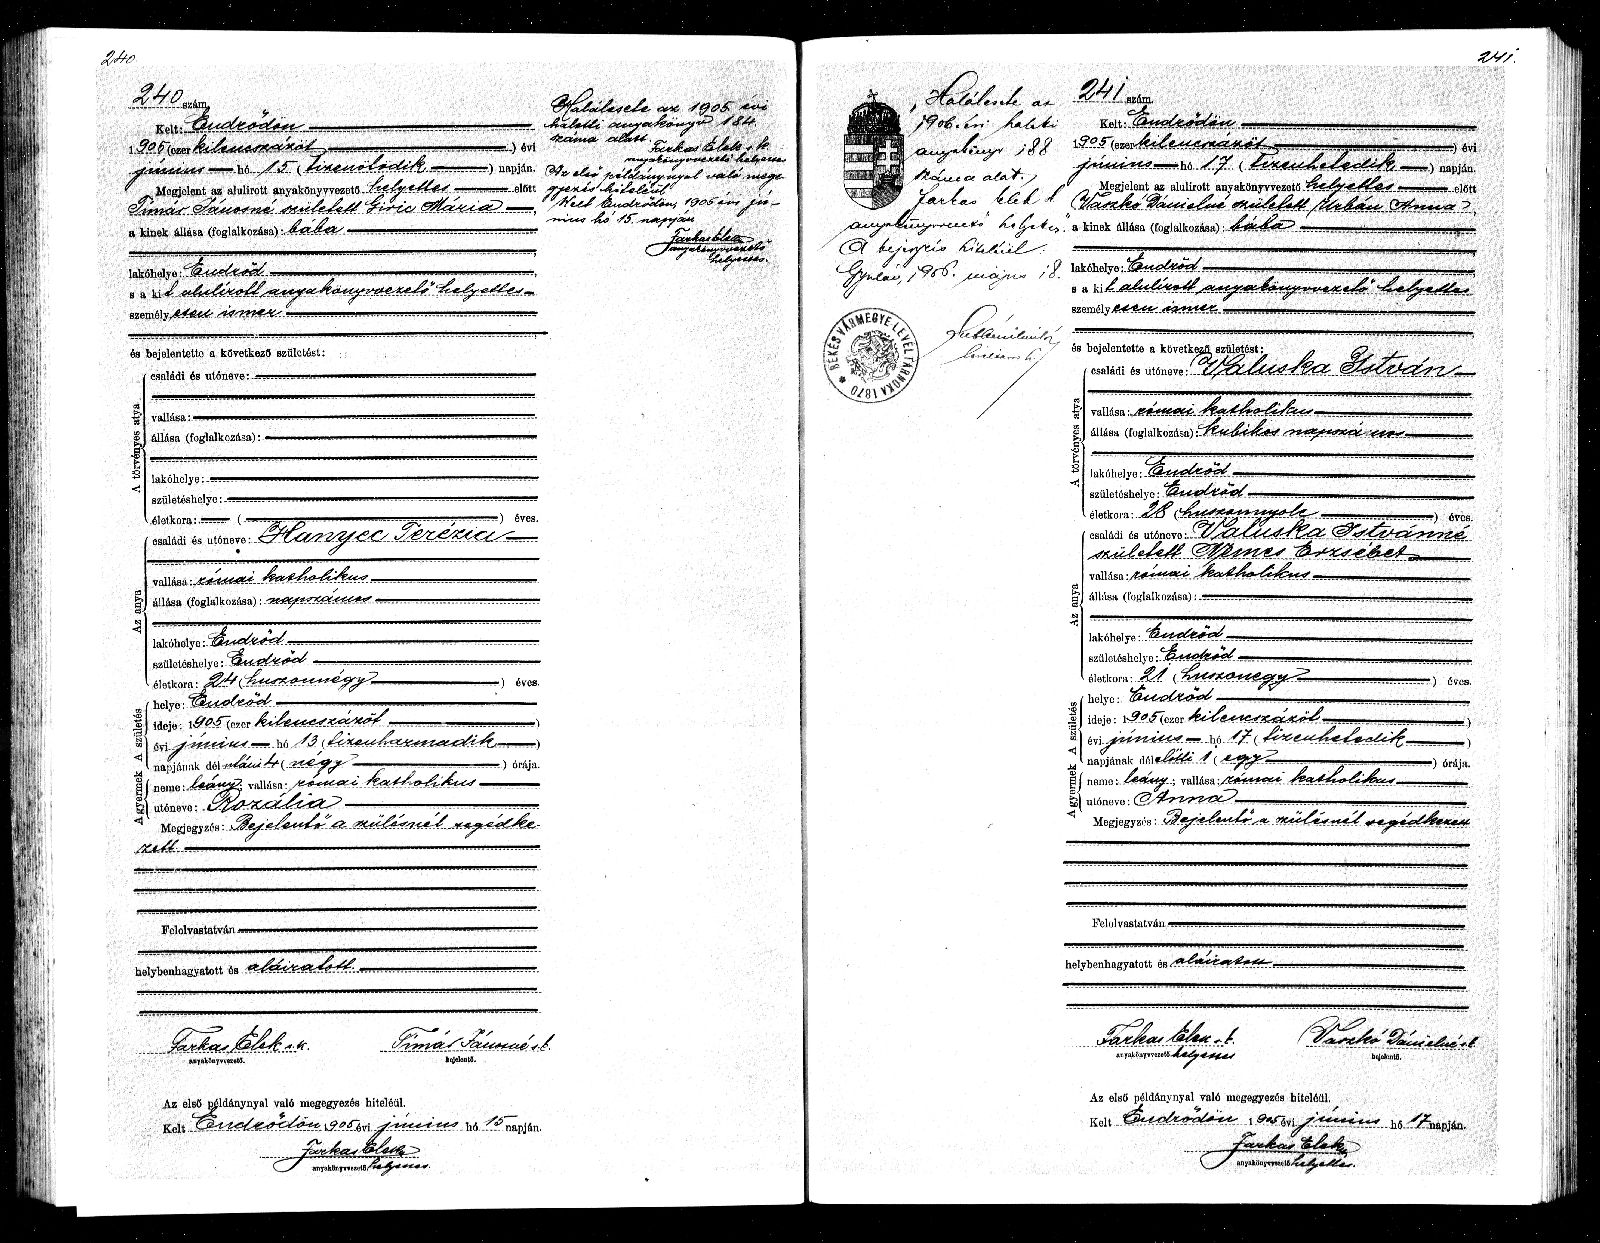 240
240 szám.
Kelt: Endrődön
1905 (ezer kilencszázöt) évi
június hó 15 (tizenötödik) napján.
Megjelent az alulirott anyakönyvvezető helyettes előtt
Timár Jánosné született Giric Mária,
a kinek állása (foglalkozása): bába
lakóhelye: Endrőd
s a kit alulírott anyakönyvvezető helyettes
személyesen ismer
és bejelentette a következő születést:
A törvényes atya
családi és utóneve:
vallása:
állása (foglalkozása):
lakóhelye:
születéshelye:
életkora: ( ) éves.
Az anya
családi és utóneve: Hanyec Terézia
vallása: római katholikus
állása (foglalkozása): napszámos
lakóhelye: Endrőd
születéshelye: Endrőd
életkora: 24 (huszonnégy) éves.
A születés
helye: Endrőd
ideje: 1905 (ezer kilencszázöt)
évi június hó 13 (tizenharmadik)
napjának délutáni 4 (négy) órája.
A gyermek
neme: leány; vallása: római katholikus
utóneve: Rozália
Megjegyzés: Bejelentő a szülésnél segédke-
zett
Felolvastatván
helybenhagyatott és aláiratott.
Farkas Elek s.k. Timár Jánosné s.k.
anyakönyvvezető. bejelentő.
Az első példánynyal való megegyezés hiteléül.
Kelt Endrődön 1905 évi június hó 15 napján.
Farkas Elek
anyakönyvvezető helyettes.
Halálesete az 1905. évi
halotti anyakönyv 184.
száma alatt.
Farkas Elek s.k.
anyakönyvvezető helyettes
Az első példánynyal való mege-
gyezés hiteléül
Kelt Endrődön, 1905 évi jú-
nius hó 15. napján
Farkas Elek
anyakönyvvezető
helyettes.
241.
"Halálesete az
1906. évi haloti
anyakönyv 188
száma alat.
Farkas Elek s.k.
anyakönyvvezető helyetes."
A bejegyzés hiteléül.
Gyulán, 1906. május 18.
BÉKÉSVÁRMEGYE LEVÉLTÁRNOKA 1870
241 szám.
Kelt: Endrődön
1905 (ezer kilencszázöt) évi
június hó 17 (tizenhetedik) napján.
Megjelent az alulirott anyakönyvvezető helyettes előtt
Vaszkó Dánielné született Urbán Anna,
a kinek állása (foglalkozása): bába
lakóhelye: Endrőd
s a kit alulírott anyakönyvvezető helyettes
személyesen ismer
és bejelentette a következő születést:
A törvényes atya
családi és utóneve: Valuska István
vallása: római katholikus
állása (foglalkozása): kubikos napszámos
lakóhelye: Endrőd
születéshelye: Endrőd
életkora: 28 (huszonnyolc) éves.
Az anya
családi és utóneve: Valuska Istvánné
született Nemes Erzsébet
vallása: római katholikus
állása (foglalkozása):
lakóhelye: Endrőd
születéshelye: Endrőd
életkora: 21 (huszonegy) éves.
A születés
helye: Endrőd
ideje: 1905 (ezer kilencszázöt)
évi június hó 17 (tizenhetedik)
napjának délelőtti 1 (egy) órája.
A gyermek
neme: leány; vallása: római katholikus
utóneve: Anna
Megjegyzés: Bejelentő a szülésnél segédkezett
Felolvastatván
helybenhagyatott és aláiratott
Farkas Elek s.k. Vaszkó Dánielné s.k.
anyakönyvvezető helyettes bejelentő.
Az első példánynyal való megegyezés hiteléül.
Kelt Endrődön 1905 évi június hó 17 napján.
Farkas Elek
anyakönyvvezető helyettes.